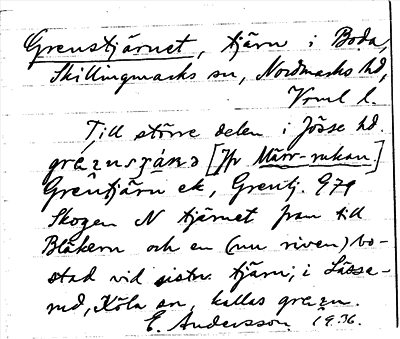 Grenstjärnet, tjärn i Boda,
Skillingmarks sn, Nordmarks hd,
Vrml l.
Till större delen i Jösse hd.
[Jfr Märr-rukan]
Grentjärn ek, Grentj. G79
Skogen N tjärnet fram till
Blåkern och en (nu riven) bo-
stad vid sistn. tjärn, i Lässe-
rud, Köla sn, kallas
E. Andersson 1936.